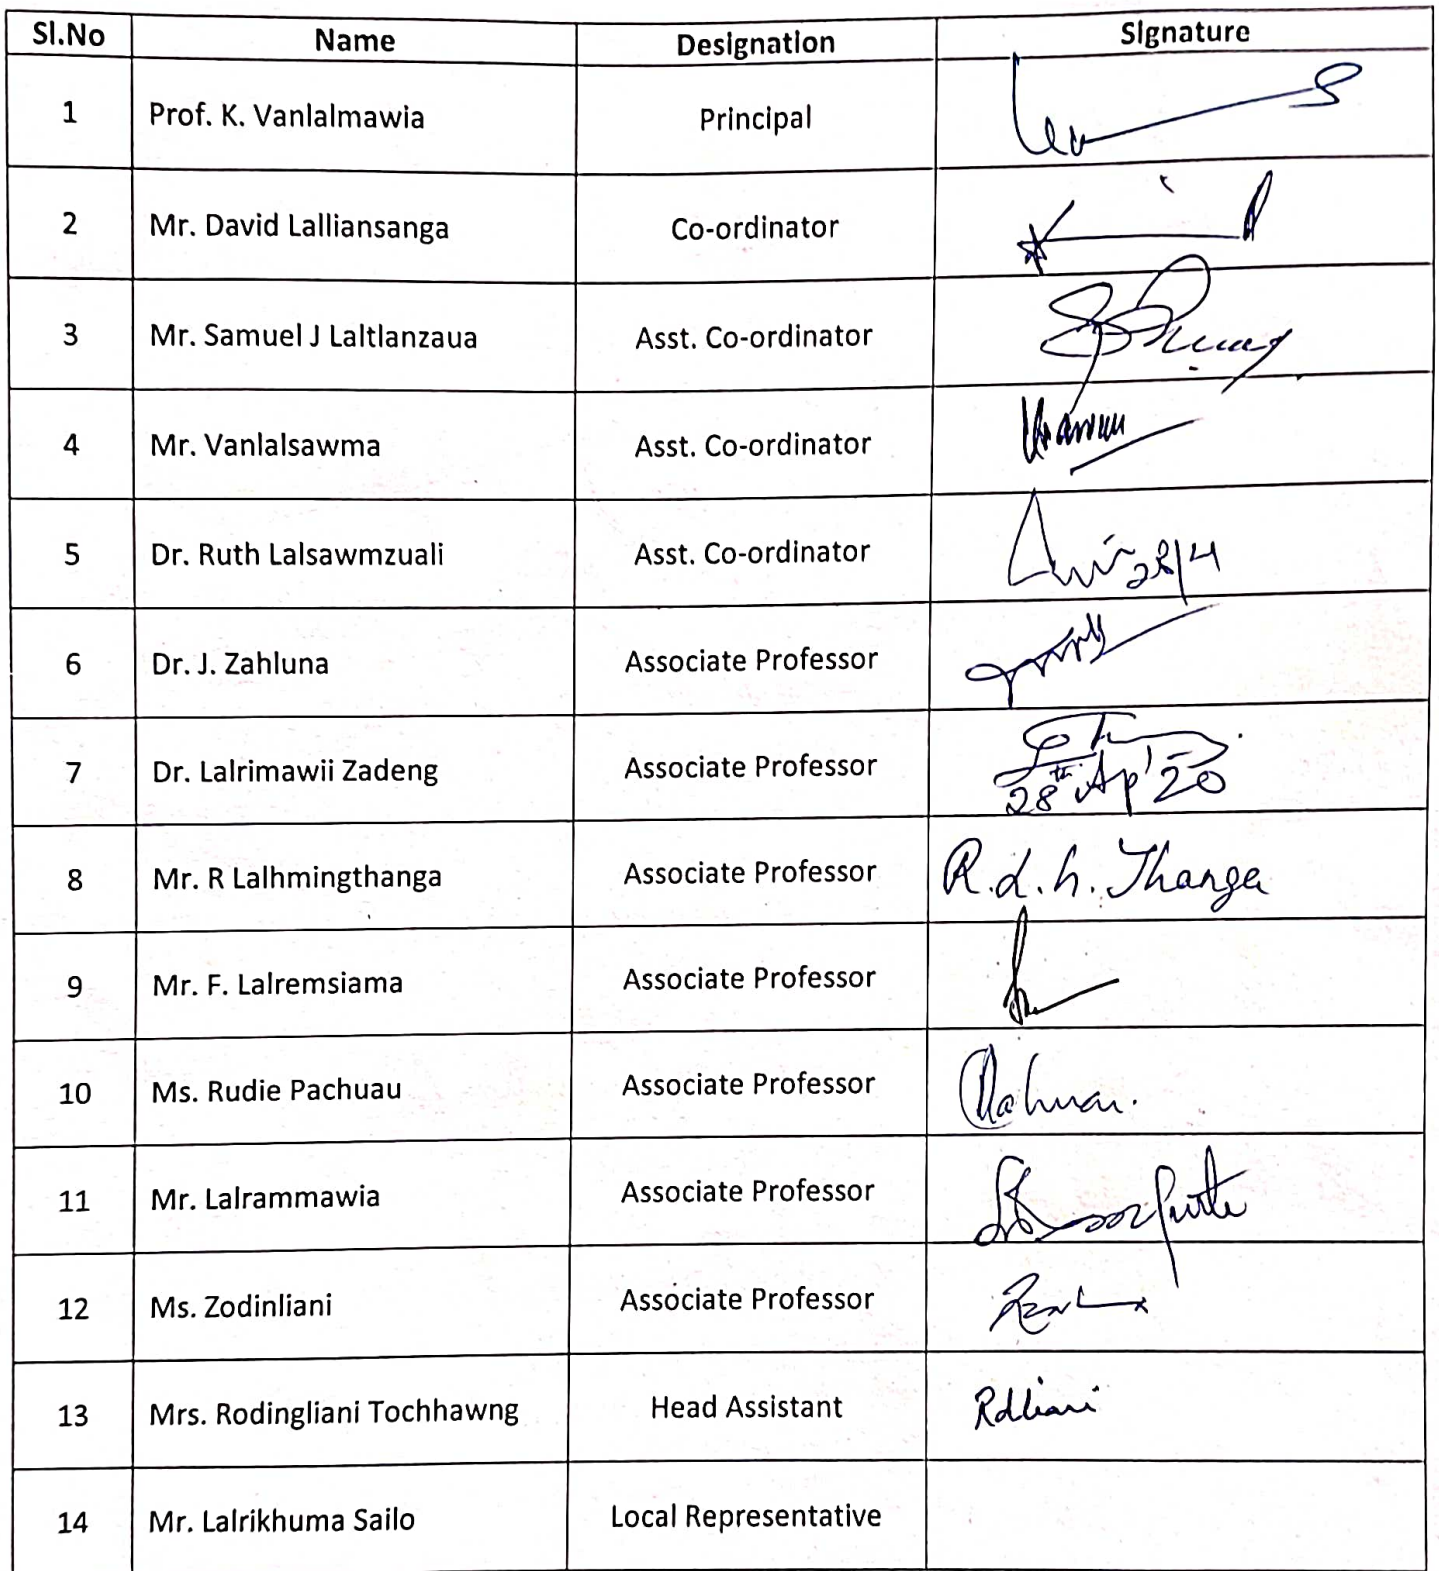 Sl.No Name Designation Signature
1 Prof. K. Vanlalmawia Principal
2 Mr. David Lalliansanga Co-ordinator
3 Mr. Samuel J Laltlanzaua Asst. Co-ordinator
4 Mr. Vanlalsawma Asst. Co-ordinator
5 Dr. Ruth Lalsawmzuali Asst. Co-ordinator 28/4
6 Dr. J. Zahluna Associate Professor
7 Dr. Lalrimawii Zadeng Associate Professor 28th Ap' 20
8 Mr. R Lalhmingthanga Associate Professor R.L.h. Thanga
9 Mr. F. Lalremsiama Associate Professor
10 Ms. Rudie Pachuau Associate Professor
11 Mr. Lalrammawia Associate Professor
12 Ms. Zodinliani Associate Professor
13 Mrs. Rodingliani Tochhawng Head Assistant Rdliani
14 Mr. Lalrikhuma Sailo Local Representative